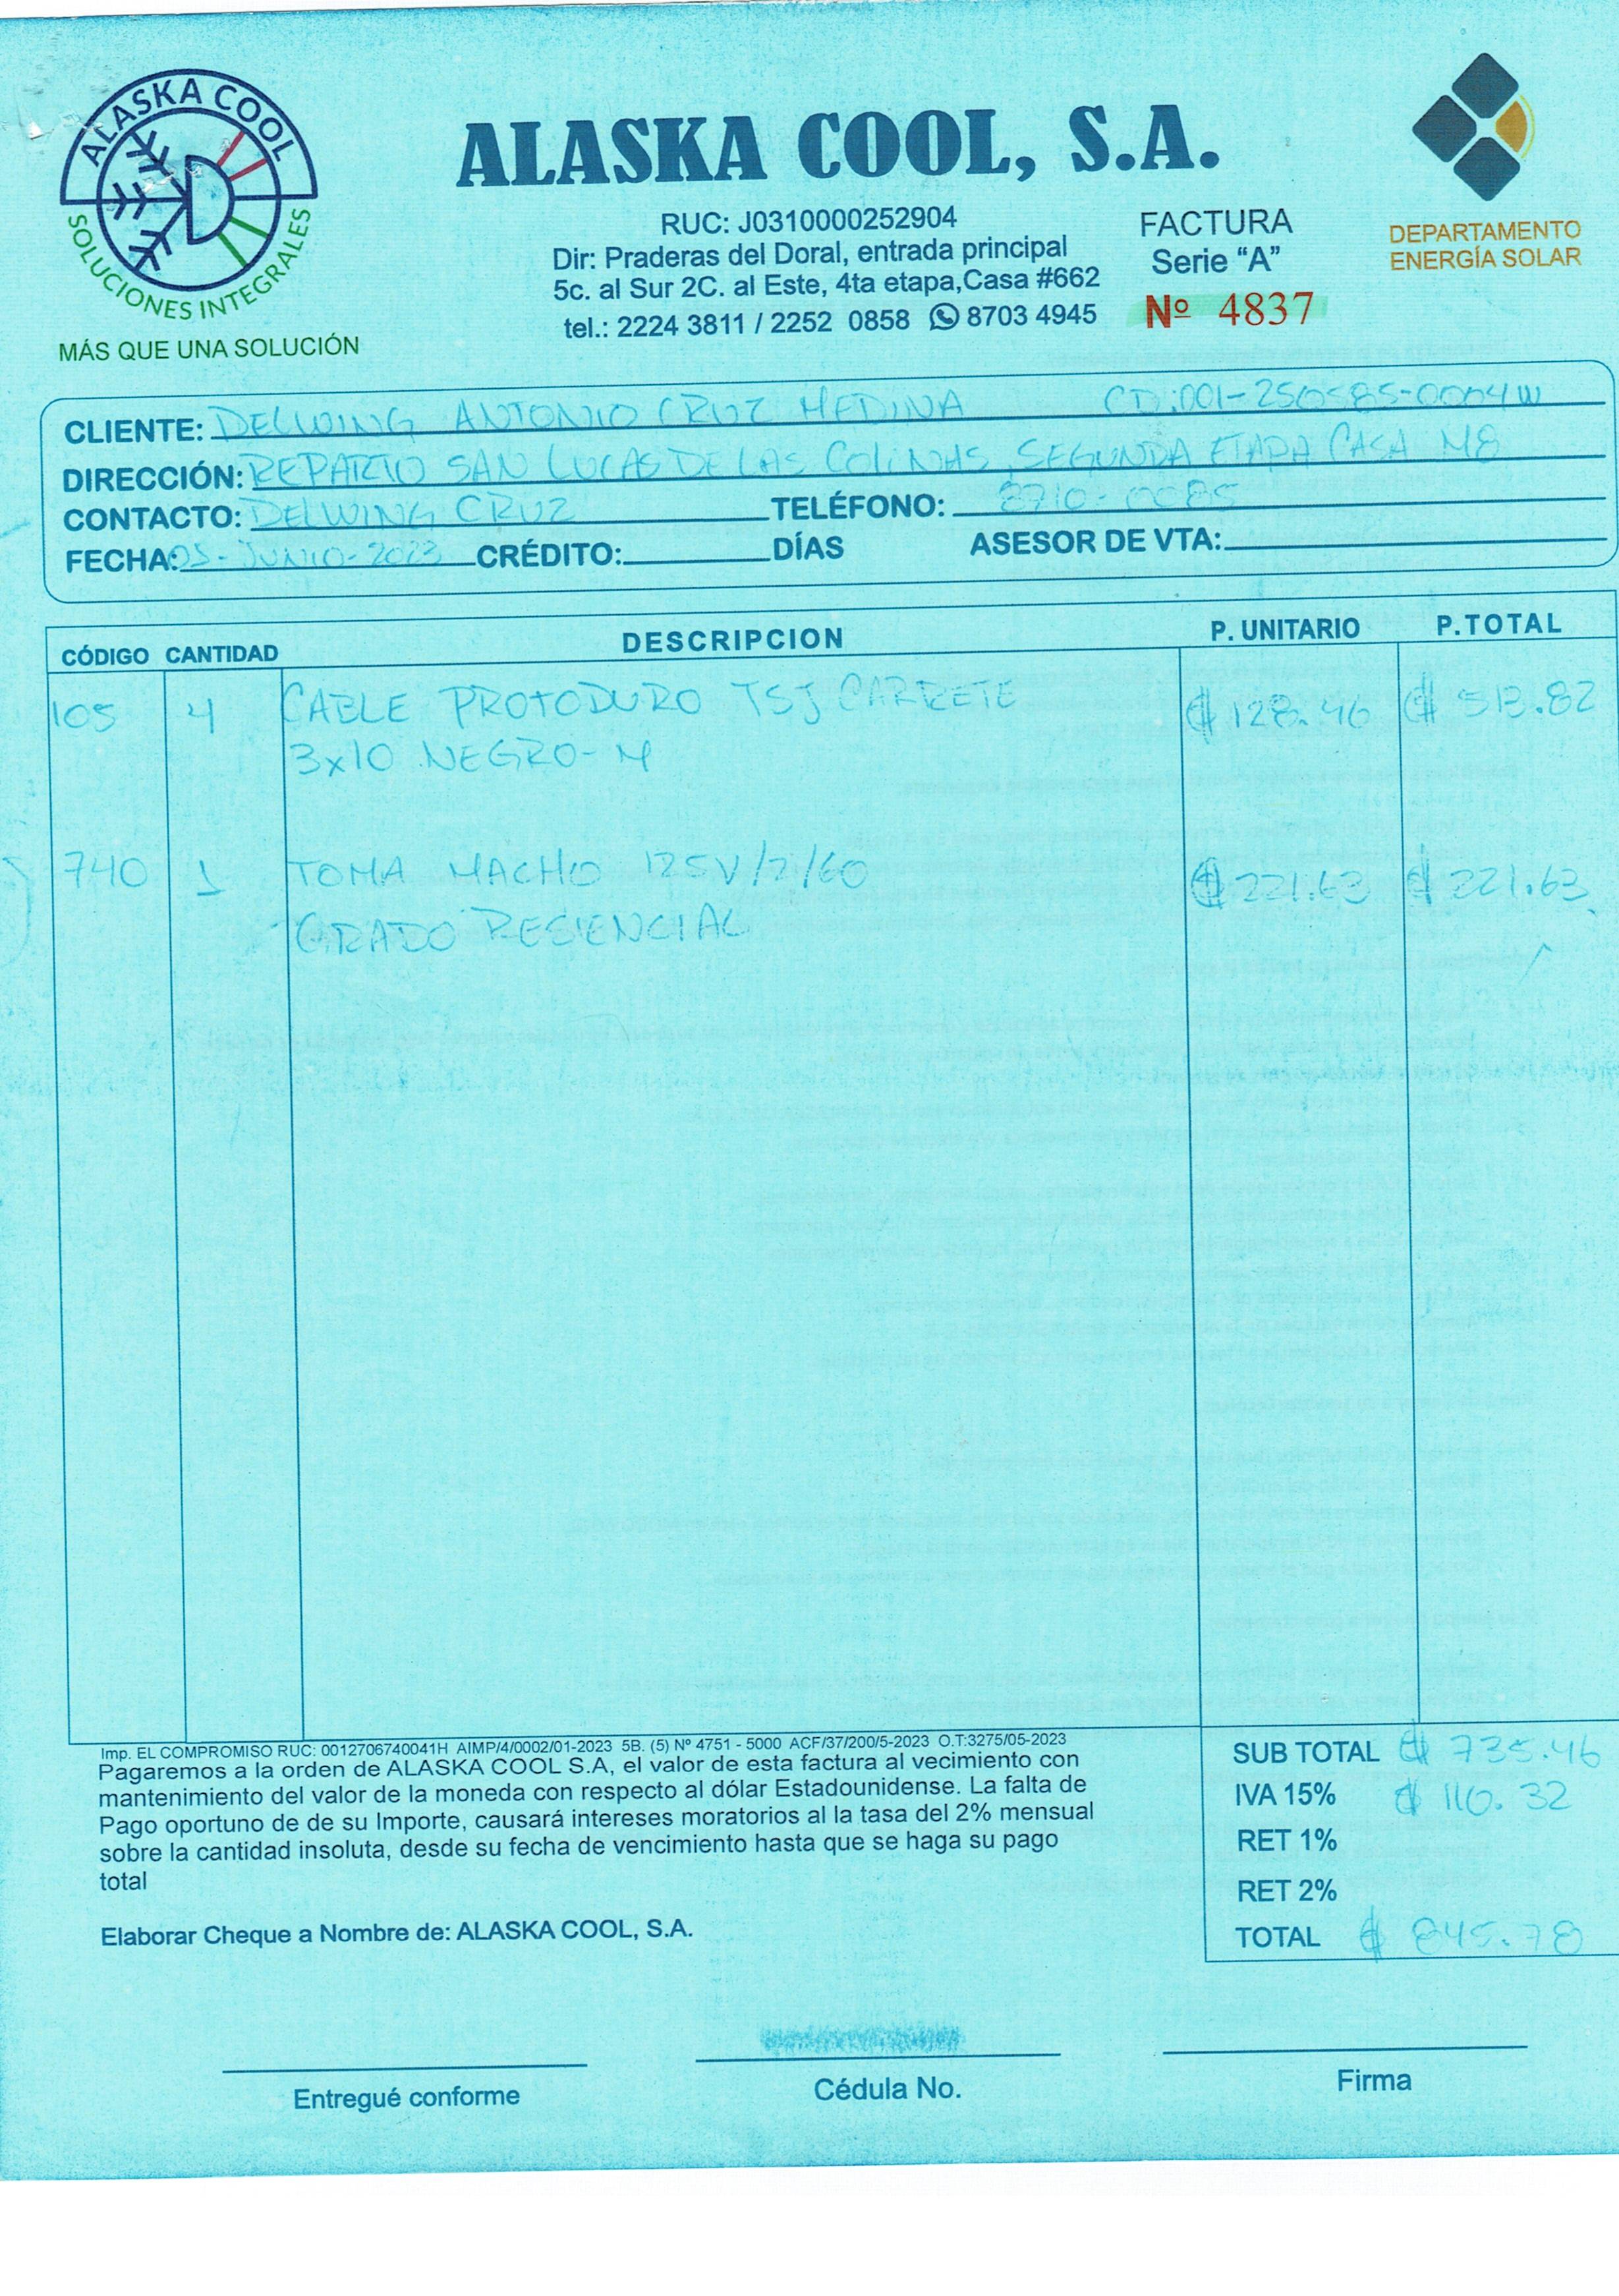 ALASKA COOL
SOLUCIONES INTEGRALES
MÁS QUE UNA SOLUCIÓN
ALASKA COOL, S.A.
RUC: J0310000252904
Dir: Praderas del Doral, entrada principal
5c. al Sur 2C. al Este, 4ta etapa,Casa #662
tel.: 2224 3811 / 2252 0858 8703 4945
FACTURA
Serie “A”
Nº 4837
DEPARTAMENTO
ENERGÍA SOLAR
CLIENTE: DELWING ANTONIO CRUZ MEDINA CD:001-250585-0004W
DIRECCIÓN: REPARTO SAN LUCAS DE LAS COLINAS, SEGUNDA ETAPA CASA M8
CONTACTO: DELWING CRUZ TELÉFONO: 8710-0085
FECHA: 05-JUNIO-2023 CRÉDITO: DÍAS ASESOR DE VTA:
CÓDIGO CANTIDAD DESCRIPCION P. UNITARIO P.TOTAL
105 4 CABLE PROTODURO TSJ CARRETE C$ 128.46 C$ 513.82
3x10 NEGRO-M
740 1 TOMA MACHO 125V/2/60 C$ 221.63 C$ 221.63
GRADO RESIENCIAL
Imp. EL COMPROMISO RUC: 0012706740041H AIMP/4/0002/01-2023 5B. (5) Nº 4751 - 5000 ACF/37/200/5-2023 O.T:3275/05-2023
Pagaremos a la orden de ALASKA COOL S.A, el valor de esta factura al vecimiento con
mantenimiento del valor de la moneda con respecto al dólar Estadounidense. La falta de
Pago oportuno de de su Importe, causará intereses moratorios al la tasa del 2% mensual
sobre la cantidad insoluta, desde su fecha de vencimiento hasta que se haga su pago
total
Elaborar Cheque a Nombre de: ALASKA COOL, S.A.
SUB TOTAL C$ 735.46
IVA 15% C$ 110.32
RET 1%
RET 2%
TOTAL C$ 845.78
Entregué conforme
Cédula No.
Firma